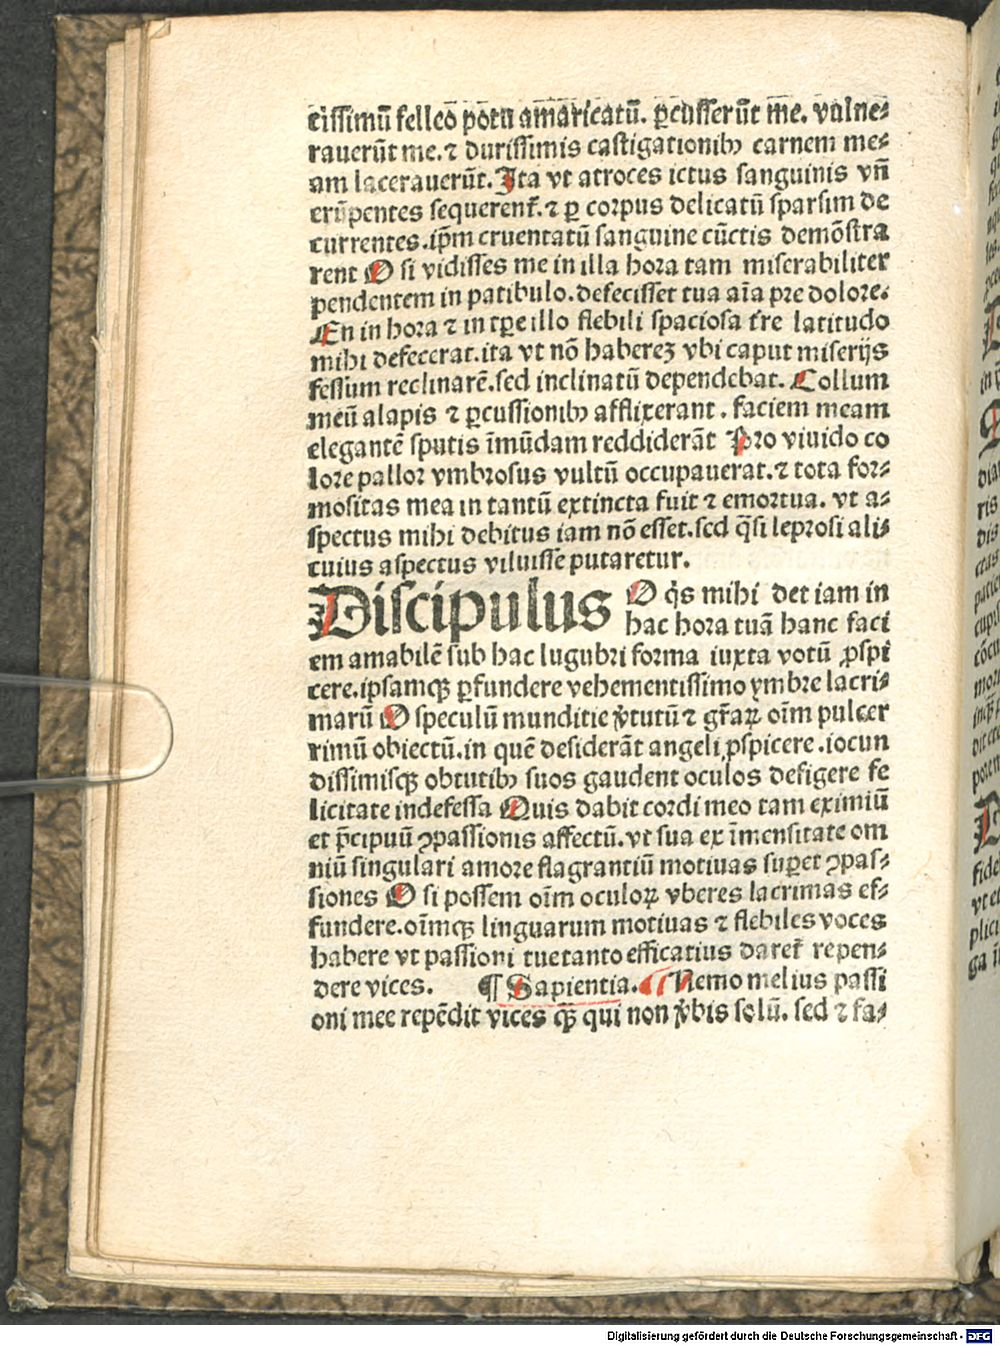 ctissimũ felleo potu amaricatũ. ꝑcusserũt me. vulne⸗
rauerũt me.⁊ durissimis castigationibꝰ carnem me⸗
am lacerauerũt. Ita vt atroces ictus sanguinis vñ
erũpentes sequerent̃.⁊ ꝑ corpus delicatũ sparsim de
currentes.ip̃m cruentatũ sanguine cũctis demõstra
rent O si vidisses me in illa hora tam miserabiliter
pendentem in patibulo.defecisset tua aĩa pre dolore.
En in hora ⁊ in tꝑe illo flebili spaciosa tr̃e latitudo
mihi defecerat.ita vt nõ haberez vbi caput miserijs
fessum reclinarẽ.sed inclinatũ dependebat. Collum
meũ alapis ⁊ ꝑcussionibꝰ afflixerant. faciem meam
elegantẽ sputis ĩmũdam reddiderãt Pro viuido co
lore pallor vmbrosus vultũ occupauerat.⁊ tota for⸗
mositas mea in tantũ extincta fuit ⁊ emortua. vt a⸗
spectus mihi debitus iam nõ esset.sed q̃si leprosi ali⸗
cuius aspectus viluisse putaretur.
Discipulus O q̃s mihi det iam in
hac hora tuã hanc faci
em amabilẽ sub hac lugubri forma iuxta votũ ꝓspi
cere.ipsamqꝫ ꝑfundere vehementissimo ymbre lacri⸗
marũ O speculũ munditie ṽtutũ ⁊ gr̃aꝝ oĩm pulcer
rimũ obiectũ.in quẽ desiderãt angeli ꝓspicere.iocun
dissimisqꝫ obtutibꝰ suos gaudent oculos defigere fe
licitate indefessa Quis dabit cordi meo tam eximiũ
et p̃cipuũ ꝯpassionis affectũ.vt sua ex ĩmensitate om
niũ singulari amore flagrantiũ motiuas suꝑet ꝯpas⸗
siones O si possem oĩm oculoꝝ vberes lacrimas ef⸗
fundere.oĩmqꝫ linguarum motiuas ⁊ flebiles voces
habere vt passioni tue tanto efficatius daret̃ repen⸗
dere vices. ¶ Sapientia. ¶ Nemo melius passi
oni mee repẽdit vices qꝫ qui non ṽbis solũ. sed ⁊ fa⸗
Digitalisierung gefördert durch die Deutsche Forschungsgemeinschaft - DFG